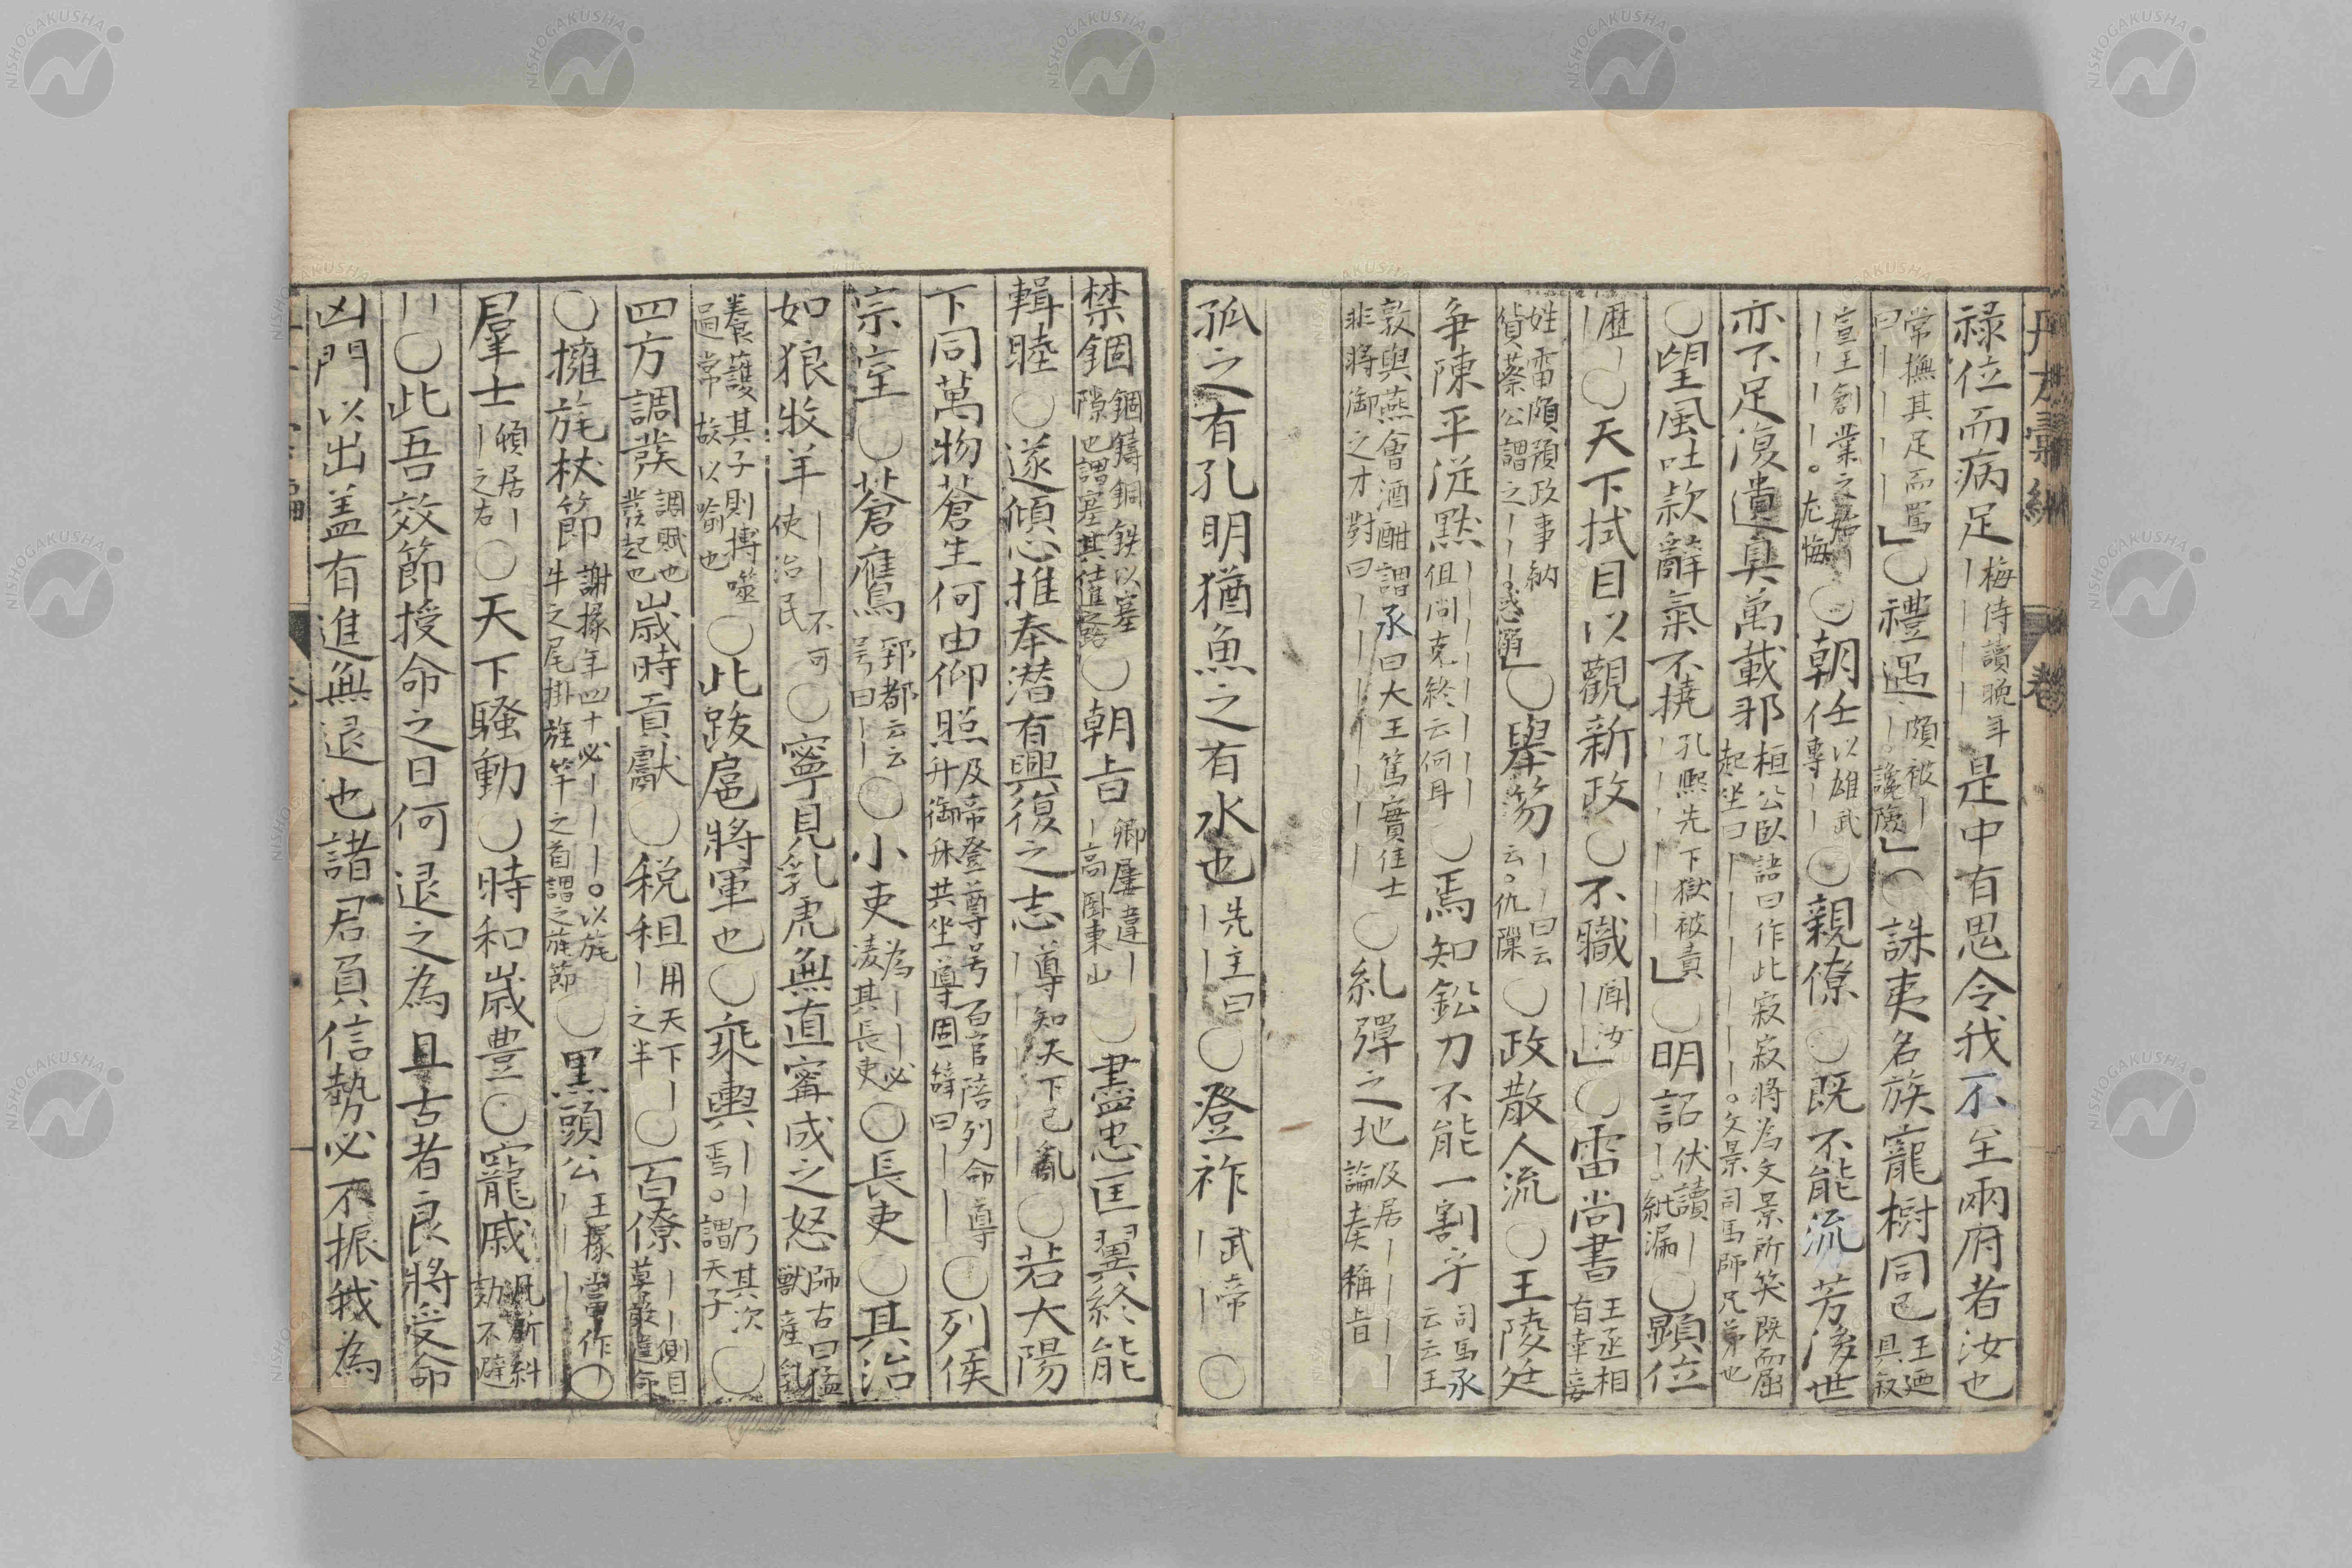 祿位而病足梅侍讀晚年｜｜｜｜是中有思令我不至兩府者汝也
常撫其足而罵曰｜｜｜｜」○禮遇頗被｜｜。讒隙」○誅夷名族寵樹同己王廼具叙
宣王創業之始｜｜｜｜。尤悔○朝任以雄武專｜｜○親僚○既不能流芳後世
亦不足復遺臭萬載邪桓公臥語曰作此寂寂將為文景所笑既而屈起坐曰｜｜｜｜｜｜。文景司馬師兄弟也
○望風吐款辭氣不撓孔熙先下獄被責｜｜｜｜｜｜｜」○明詔伏讀｜｜。紕漏○顯位
歷｜｜○天下拭目以觀新政○不職聞汝｜｜」○雷尚書王丞相有幸妾
姓雷頗預政事納貨蔡公謂之｜｜｜。惑溺」○舉笏｜｜曰云云。仇隟○政散人流○王陵廷
争陳平從默｜｜｜｜｜｜｜但問克終云何耳○焉知鉛刀不能一割乎司馬承云云王
敦與燕會酒酣謂承曰大王篤實佳士非將御之才對曰｜｜｜｜｜｜｜○糺彈之地及居｜｜｜｜論奏稱旨
孤之有孔明猶魚之有水也先主曰｜｜｜○登祚武帝｜｜○
禁錮錮鑄銅鉄以塞隙也謂塞其仕路○朝旨卿屢違｜｜高臥東山○盡忠匡翼終能
輯睦○遂傾心推奉潜有興復之志導知天下已亂｜｜○若大陽
下同萬物蒼生何由仰照及帝登尊号百官陪列命導升御牀共坐導固辞曰｜｜○列侯
宗室○蒼鷹郅都云云号曰｜｜○小吏為｜｜必凌其長吏○長吏○其治
如狼牧羊｜｜｜不可使治民○寧見乳虎無直寗成之怒師古曰猛獣産乳
養護其子則搏噬過常故以喻也○此跋扈將軍也○乗輿｜｜乃其次焉。謂天子○
四方調發調賦也發起也○歳時貢獻○税租用天下｜｜之半○百僚｜｜側目莫敢違命
○擁旄杖節謝掾年四十必｜｜｜｜。以旄牛之尾掛旌竿之首謂之旄節○黒頭公王掾當作｜｜｜○
羣士傾居｜｜之右○天下騷動○時和歳豊○寵戚諷所糾劾不避
｜｜○此吾效節授命之日何退之為且古者良將受命
凶門以出盖有進無退也諸君負信勢必不振我為